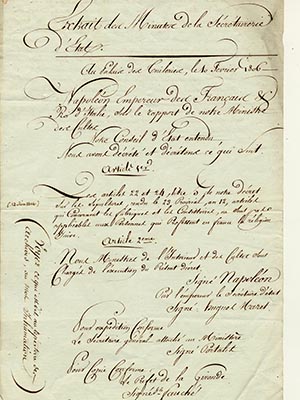 Extrait des Minutes de la Secrétairerie
d'État.
Au Palais des Tuileries, le 10 Fevrier 1806
Napoléon Empereur des Français &
Roi d'Italie, sur le rapport de notre Ministre
des Cultes
Notre Conseil d'État entendu
Nous avons décrété et décrétons ce qui suit.
Article 1er
Les articles 22 et 24, titre 5 de notre decret
sur les Sépultures, rendu le 23 Prairial, an 12,
qui Concernent les fabriques et les Consistoires, ne sont pas
applicables aux Personnes qui Professent en france la religion
Juive.
Article 2eme
Nos Ministres de l'Intérieur et des Cultes sont
Chargés de l'execution du Présent decret.
Signé Napoléon
Par l'empereur le Secrétaire d'état
Signé hugues Maret
Pour expedition Conforme
Le Secretaire général attaché au Ministère
Signé Portalis
Pour Copie Conforme
Le Préfet de la Gironde
Signé Fauchet